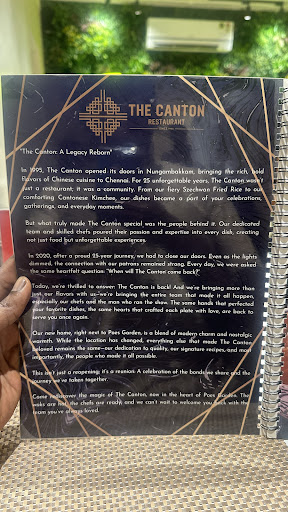 THE CANTON
RESTAURANT
THE CANTON
RESTAURANT
"The Canton: A Legacy Reborn"
In 1995, The Canton opened its doors in Nungambakkam, bringing the rich, bold
flavors of Chinese cuisine to Chennai. For 25 unforgettable years, The Canton wasn't
just a restaurant; it was a community. From our fiery Szechwan Fried Rice to our
comforting Cantonese Kimchee, our dishes became a part of your celebrations,
gatherings, and everyday moments.
But what truly made The Canton special was the people behind it. Our dedicated
team and skilled chefs poured their passion and expertise into every dish, creating
not just food but unforgettable experiences.
In 2020, after a proud 25-year journey, we had to close our doors. Even as the lights
dimmed, the connection with our patrons remained strong. Every day, we were asked
the same heartfelt question: "When will The Canton come back?"
Today, we're thrilled to answer: The Canton is back! And we're bringing more than
just our flavors with us—we're bringing the entire team that made it all happen,
especially our chefs and the man who ran the show. The same hands that perfected
your favorite dishes, the same hearts that crafted each plate with love, are back to
serve you once again.
Our new home, right next to Poes Garden, is a blend of modern charm and nostalgic
warmth. While the location has changed, everything else that made The Canton
beloved remains the same—our dedication to quality, our signature recipes, and most
importantly, the people who made it all possible.
This isn't just a reopening; it's a reunion. A celebration of the bonds we share and the
journey we've taken together.
Come rediscover the magic of The Canton, now in the heart of Poes Garden. The
woks are hot, the chefs are ready, and we can't wait to welcome you back with the
team you've always loved.